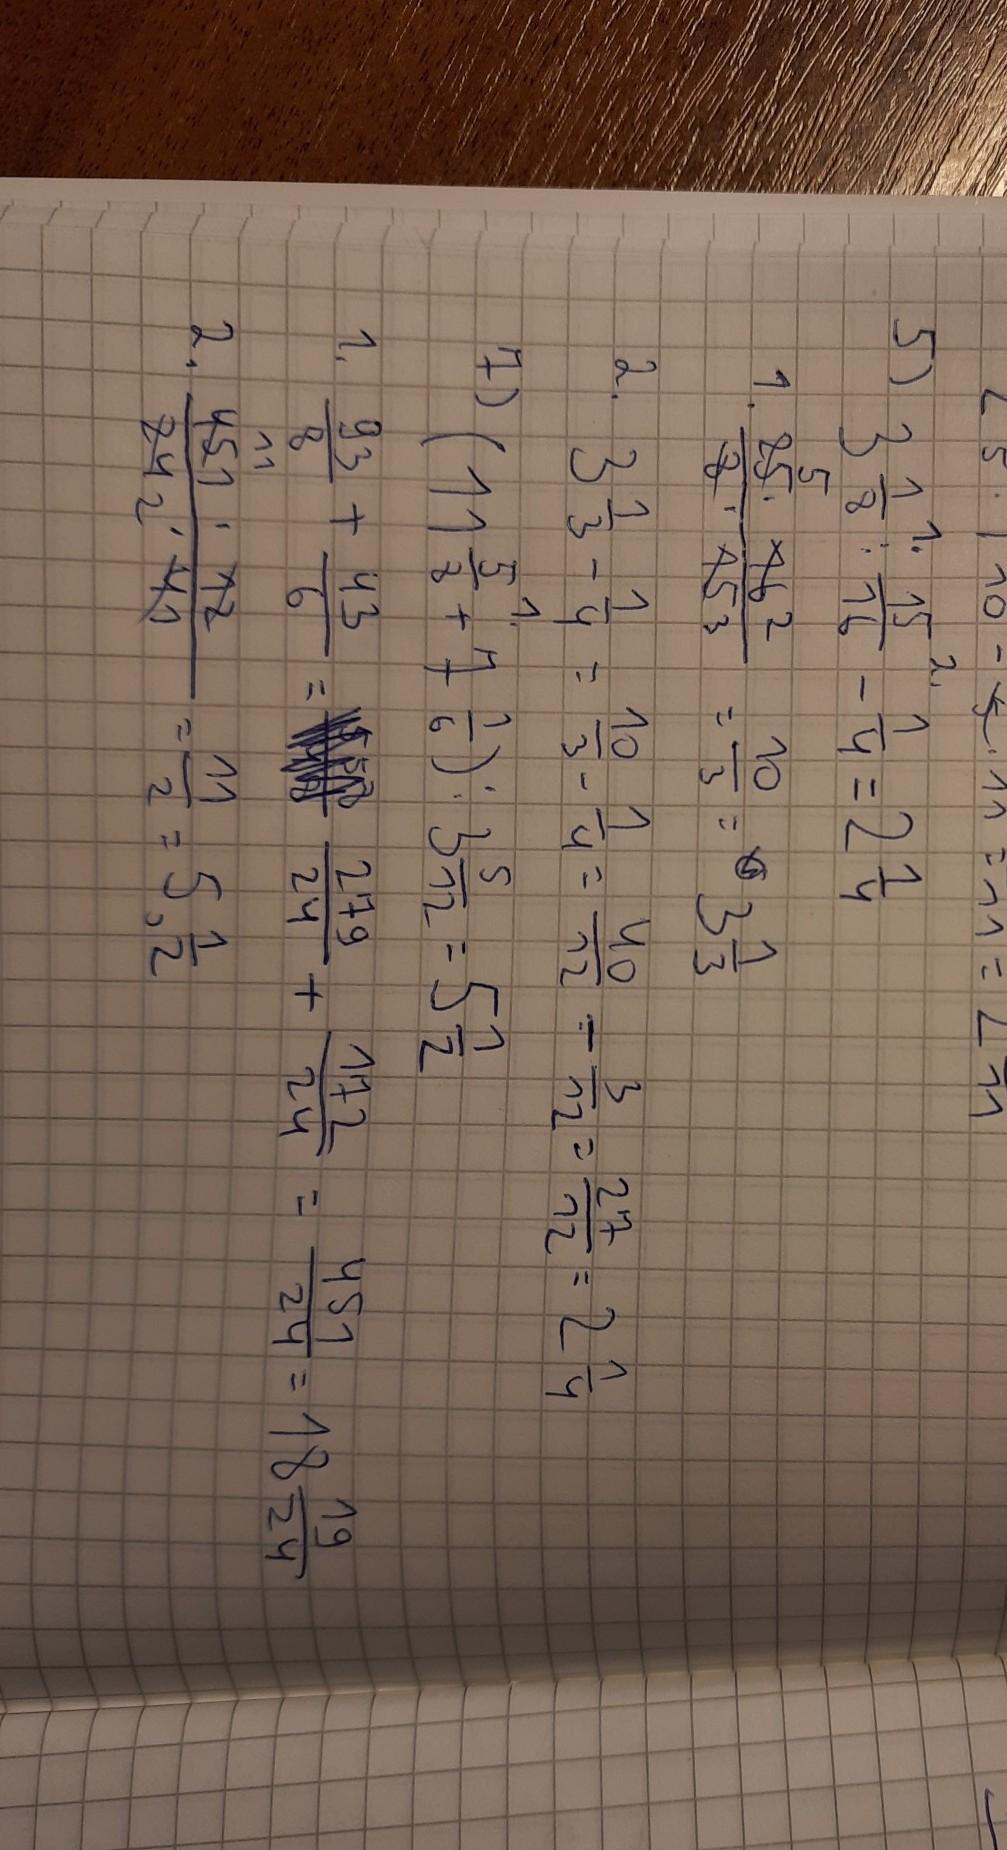 5) 3 1/8 : 15/16 - 1/4 = 2 1/4
1. 25 · 16 / 8 · 15 = 10/3 = 3 1/3
2. 3 1/3 - 1/4 = 10/3 - 1/4 = 40/12 - 3/12 = 27/12 = 2 1/4
7) (11 5/8 + 7 1/6) : 3 5/12 = 5 1/2
1. 93/8 + 43/6 = 279/24 + 172/24 = 451/24 = 18 19/24
2. 451 · 12 / 24 · 41 = 11/2 = 5, 1/2